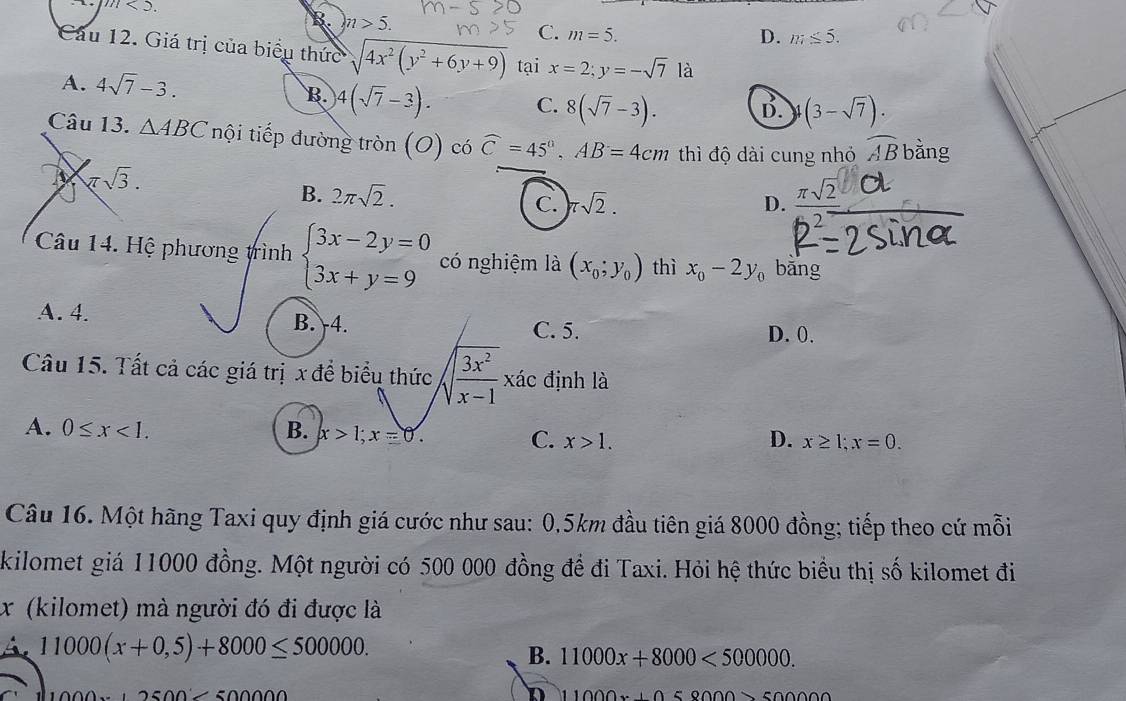 m < 5.
B. m > 5.
m - 5 > 0
m > 5
C. m = 5.
D. m ≤ 5.
Câu 12. Giá trị của biểu thức √(4x²(y² + 6y + 9)) tại x = 2; y = -√7 là
A. 4√7 - 3.
B. 4(√7 - 3).
C. 8(√7 - 3).
D. 4(3 - √7).
Câu 13. △ABC nội tiếp đường tròn (O) có Ĉ = 45⁰, AB = 4cm thì độ dài cung nhỏ AB bằng
A. π√3.
B. 2π√2.
C. π√2.
D. π√2
R² = a / 2 sin a
Câu 14. Hệ phương trình { 3x - 2y = 0
3x + y = 9 có nghiệm là (x₀; y₀) thì x₀ - 2y₀ bằng
A. 4.
B. -4.
C. 5.
D. 0.
Câu 15. Tất cả các giá trị x để biểu thức √(3x²/(x - 1)) xác định là
A. 0 ≤ x < 1.
B. x > 1; x = 0.
C. x > 1.
D. x ≥ 1; x = 0.
Câu 16. Một hãng Taxi quy định giá cước như sau: 0,5km đầu tiên giá 8000 đồng; tiếp theo cứ mỗi
kilomet giá 11000 đồng. Một người có 500 000 đồng để đi Taxi. Hỏi hệ thức biểu thị số kilomet đi
x (kilomet) mà người đó đi được là
A. 11000(x + 0,5) + 8000 ≤ 500000.
B. 11000x + 8000 < 500000.
C 11000x + 2500 < 500000
D 11000x + 0,5.8000 > 500000